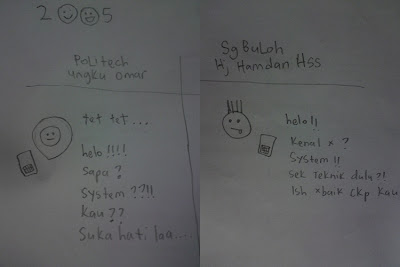 2005
Politech
ungku omar
tet tet...
helo!!!!
sapa?
System??!!
Kau??
Suka hati laa.....
Sg Buloh
Hj Hamdan Hss
helo!!
Kenal x ?
System !!
sek Teknik dulu?!
Ish xbaik ckp kau